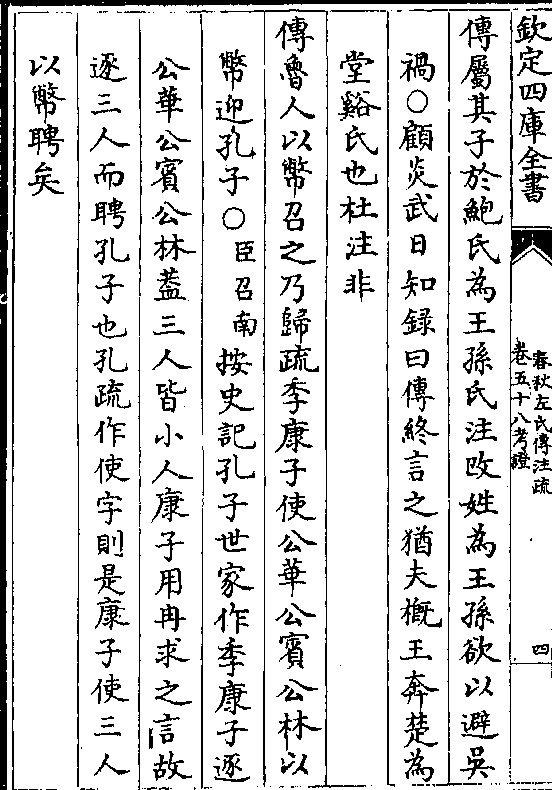 欽定四庫全書
春秋左氏傳注疏
卷五十八考證
四
傳屬其子於鮑氏為王孫氏注改姓為王孫欲以避吳
禍○顧炎武日知録曰傳終言之猶夫概王奔楚為
堂谿氏也杜注非
傳魯人以幣召之乃歸疏季康子使公華公賓公林以
幣迎孔子○臣召南按史記孔子世家作季康子逐
公華公賓公林葢三人皆小人康子用冉求之言故
逐三人而聘孔子也孔疏作使字則是康子使三人
以幣聘矣